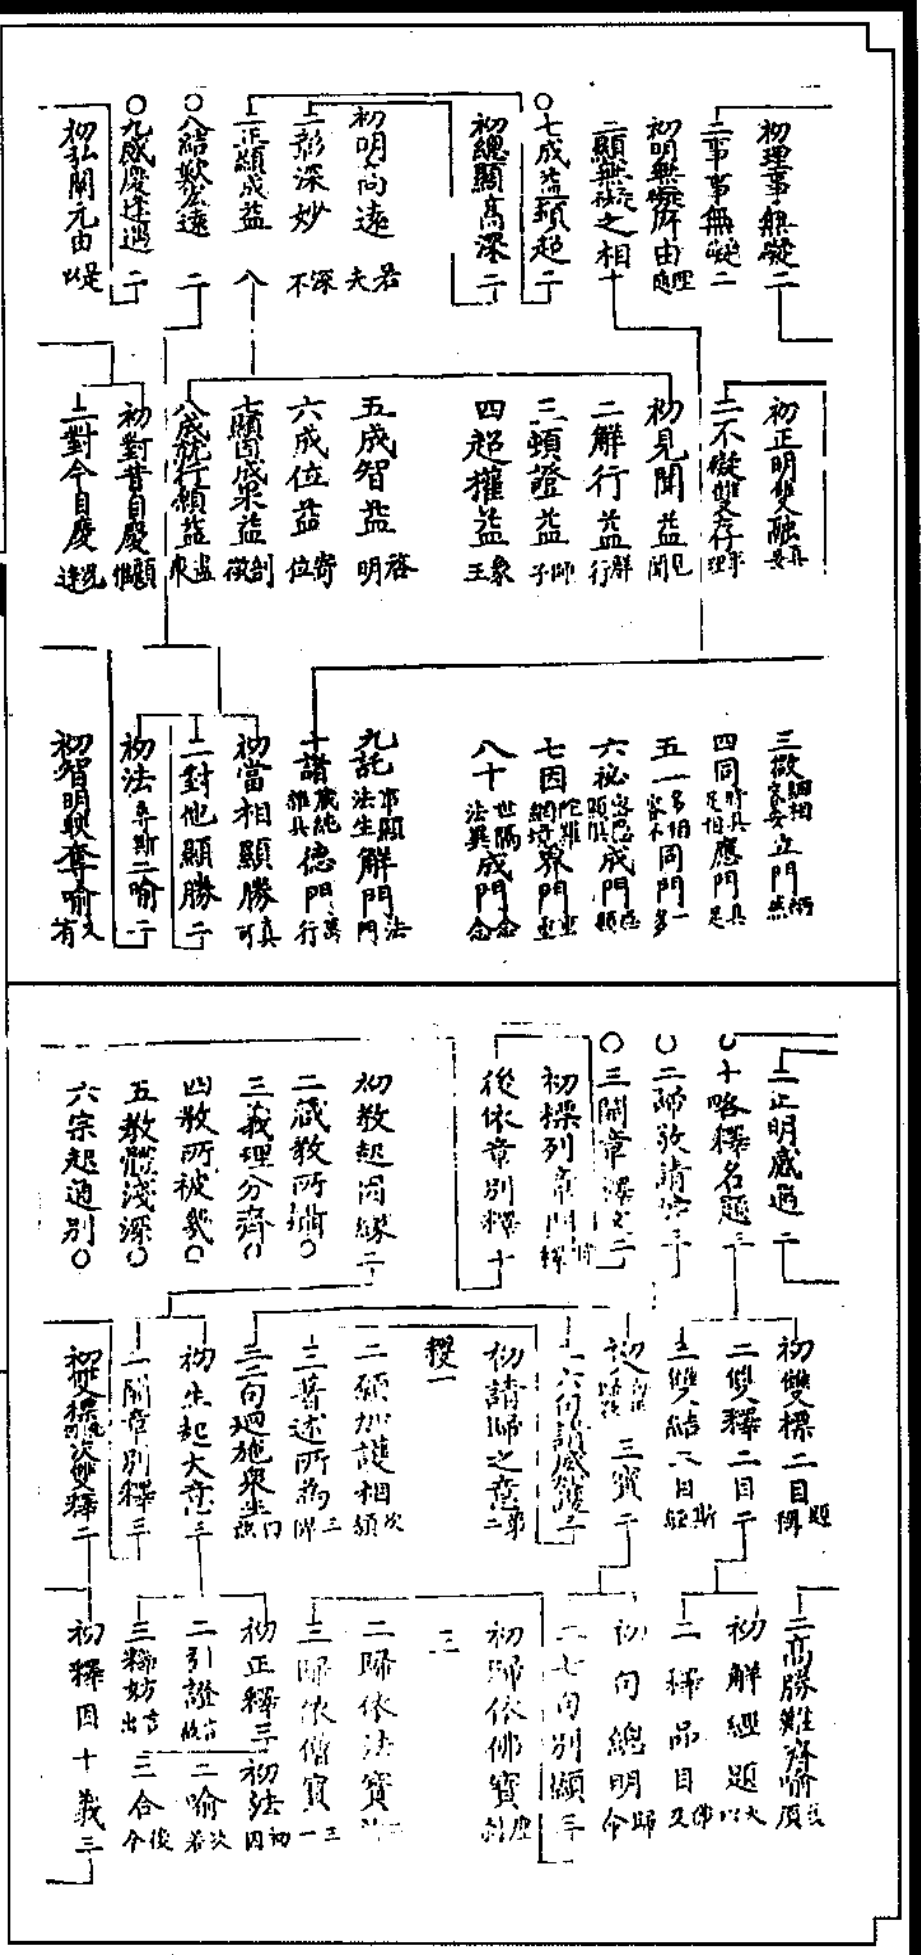 初理事無礙二
二事事無礙二
初明無礙所由
二顯無礙之相十
○七成益頓超二
初總顯高深二
初明高遠 若夫
二彰深妙 深不
二正顯成益八
○八結歎宏遠二
○九感慶逢遇二
初弘闡元由 是以
初正明雙融 真妄
二不礙雙存
初見聞益 見聞
二解行益 群行
三頓證益 師子
四超權益 象王
五成智益 啓明
六成位益 寄位
七顯因成果益 剖微
八成就行願益 盡衆
初對昔自慶 顧惟
二對今自慶 況逢
三微細相容安立門
四同時具足相應門
五一多相容不同門 一多
六祕密隱顯俱成門 隱顯
七因陀羅網境界門 重重
八十世隔法異成門 念念
九託事顯法生解門 法門
十諸藏純雜具德門 萬行
初當相顯勝 真可
二對他顯勝二
初法 尋斯 二喻二
初智明映奪喻
二正明感遇二
○十略釋名題三
○二歸敬請加三
○三開章釋文二
初標列章門
後依章別釋十
初教起因緣二
二藏教所攝○
三義理分齊○
四教所被機○
五教體淺深○
六宗趣通別○
初雙標二目 題
二雙釋二目二
三雙結二目 斯經
三寶二
初請歸之意 第二
二願加護相 次願
三著述所為 三
三二句迴施衆生 門
初生起大意三
二開章別釋三
初雙標 次雙釋二
二高勝難齊喻 須
初解經題 大以
二釋品目
初句總明 歸命
二七句別顯三
初歸依佛寶
二歸依法寶
三歸依僧寶 三一
初正釋三 初法 初因
二引證 二喻 次若
三 三合 後今
初釋因十義三